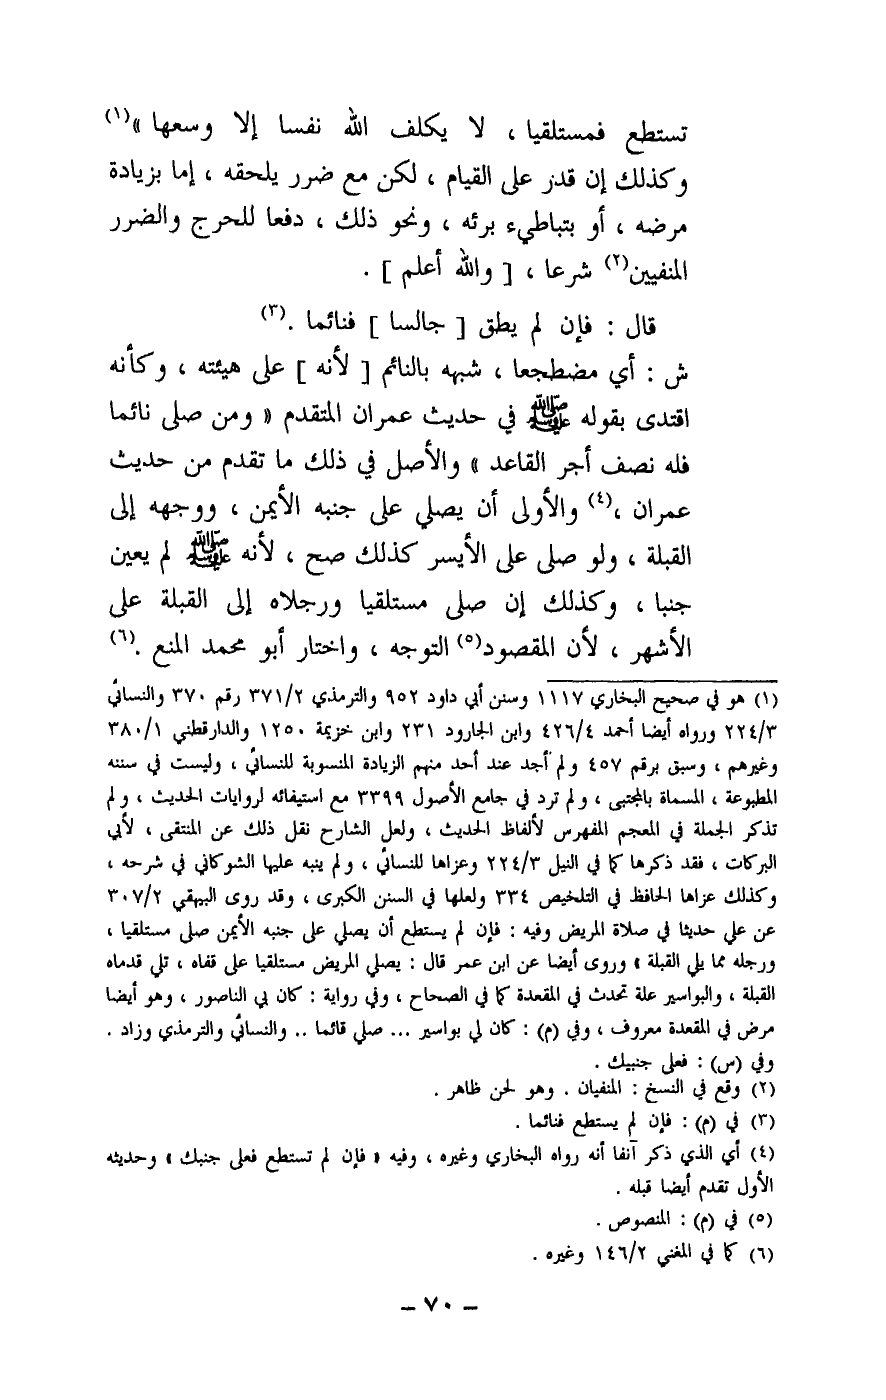 تستطع فمستلقيا ، لا يكلف الله نفسا إلا وسعها »(١)
وكذلك إن قدر على القيام ، لكن مع ضرر يلحقه ، إما بزيادة
مرضه ، أو بتباطيء برئه ، ونحو ذلك ، دفعا للحرج والضرر
المنفيين(٢) شرعا ، [ والله أعلم ] .
قال : فإن لم يطق [ جالسا ] فنائما .(٣)
ش : أي مضطجعا ، شبهه بالنائم [ لأنه ] على هيئته ، وكأنه
اقتدى بقوله ﷺ في حديث عمران المتقدم « ومن صلى نائما
فله نصف أجر القاعد » والأصل في ذلك ما تقدم من حديث
عمران ،(٤) والأولى أن يصلي على جنبه الأيمن ، ووجهه إلى
القبلة ، ولو صلى على الأيسر كذلك صح ، لأنه ﷺ لم يعين
جنبا ، وكذلك إن صلى مستلقيا ورجلاه إلى القبلة على
الأشهر ، لأن المقصود(٥) التوجه ، واختار أبو محمد المنع .(٦)
(١) هو في صحيح البخاري ١١١٧ وسنن أبي داود ٩٥٢ والترمذي ٣٧١/٢ رقم ٣٧٠ والنسائي
٢٢٤/٣ ورواه أيضا أحمد ٤٢٦/٤ وابن الجارود ٢٣١ وابن خزيمة ١٢٥٠ والدارقطني ٣٨٠/١
وغيرهم ، وسبق برقم ٤٥٧ ولم أجد عند أحد منهم الزيادة المنسوبة للنسائي ، وليست في سننه
المطبوعة ، المسماة بالمجتبى ، ولم ترد في جامع الأصول ٣٣٩٩ مع استيفائه لروايات الحديث ، ولم
تذكر الجملة في المعجم المفهرس لألفاظ الحديث ، ولعل الشارح نقل ذلك عن المنتقى ، لأبي
البركات ، فقد ذكرها كما في النيل ٢٢٤/٣ وعزاها للنسائي ، ولم ينبه عليها الشوكاني في شرحه ،
وكذلك عزاها الحافظ في التلخيص ٣٣٤ ولعلها في السنن الكبرى ، وقد روى البيهقي ٣٠٧/٢
عن علي حديثا في صلاة المريض وفيه : فإن لم يستطع أن يصلي على جنبه الأيمن صلى مستلقيا ،
ورجله مما يلي القبلة » وروى أيضا عن ابن عمر قال : يصلي المريض مستلقيا على قفاه ، تلي قدماه
القبلة ، والبواسير علة تحدث في المقعدة كما في الصحاح ، وفي رواية : كان بي الناصور ، وهو أيضا
مرض في المقعدة معروف ، وفي (م) : كان لي بواسير ... صلي قائما .. والنسائي والترمذي وزاد .
وفي (س) : فعلى جنبيك .
(٢) وقع في النسخ : المنفيان . وهو لحن ظاهر .
(٣) في (م) : فإن لم يستطع فنائما .
(٤) أي الذي ذكر آنفا أنه رواه البخاري وغيره ، وفيه « فإن لم تستطع فعلى جنبك » وحديثه
الأول تقدم أيضا قبله .
(٥) في (م) : المنصوص .
(٦) كما في المغني ١٤٦/٢ وغيره .
– ٧٠ –